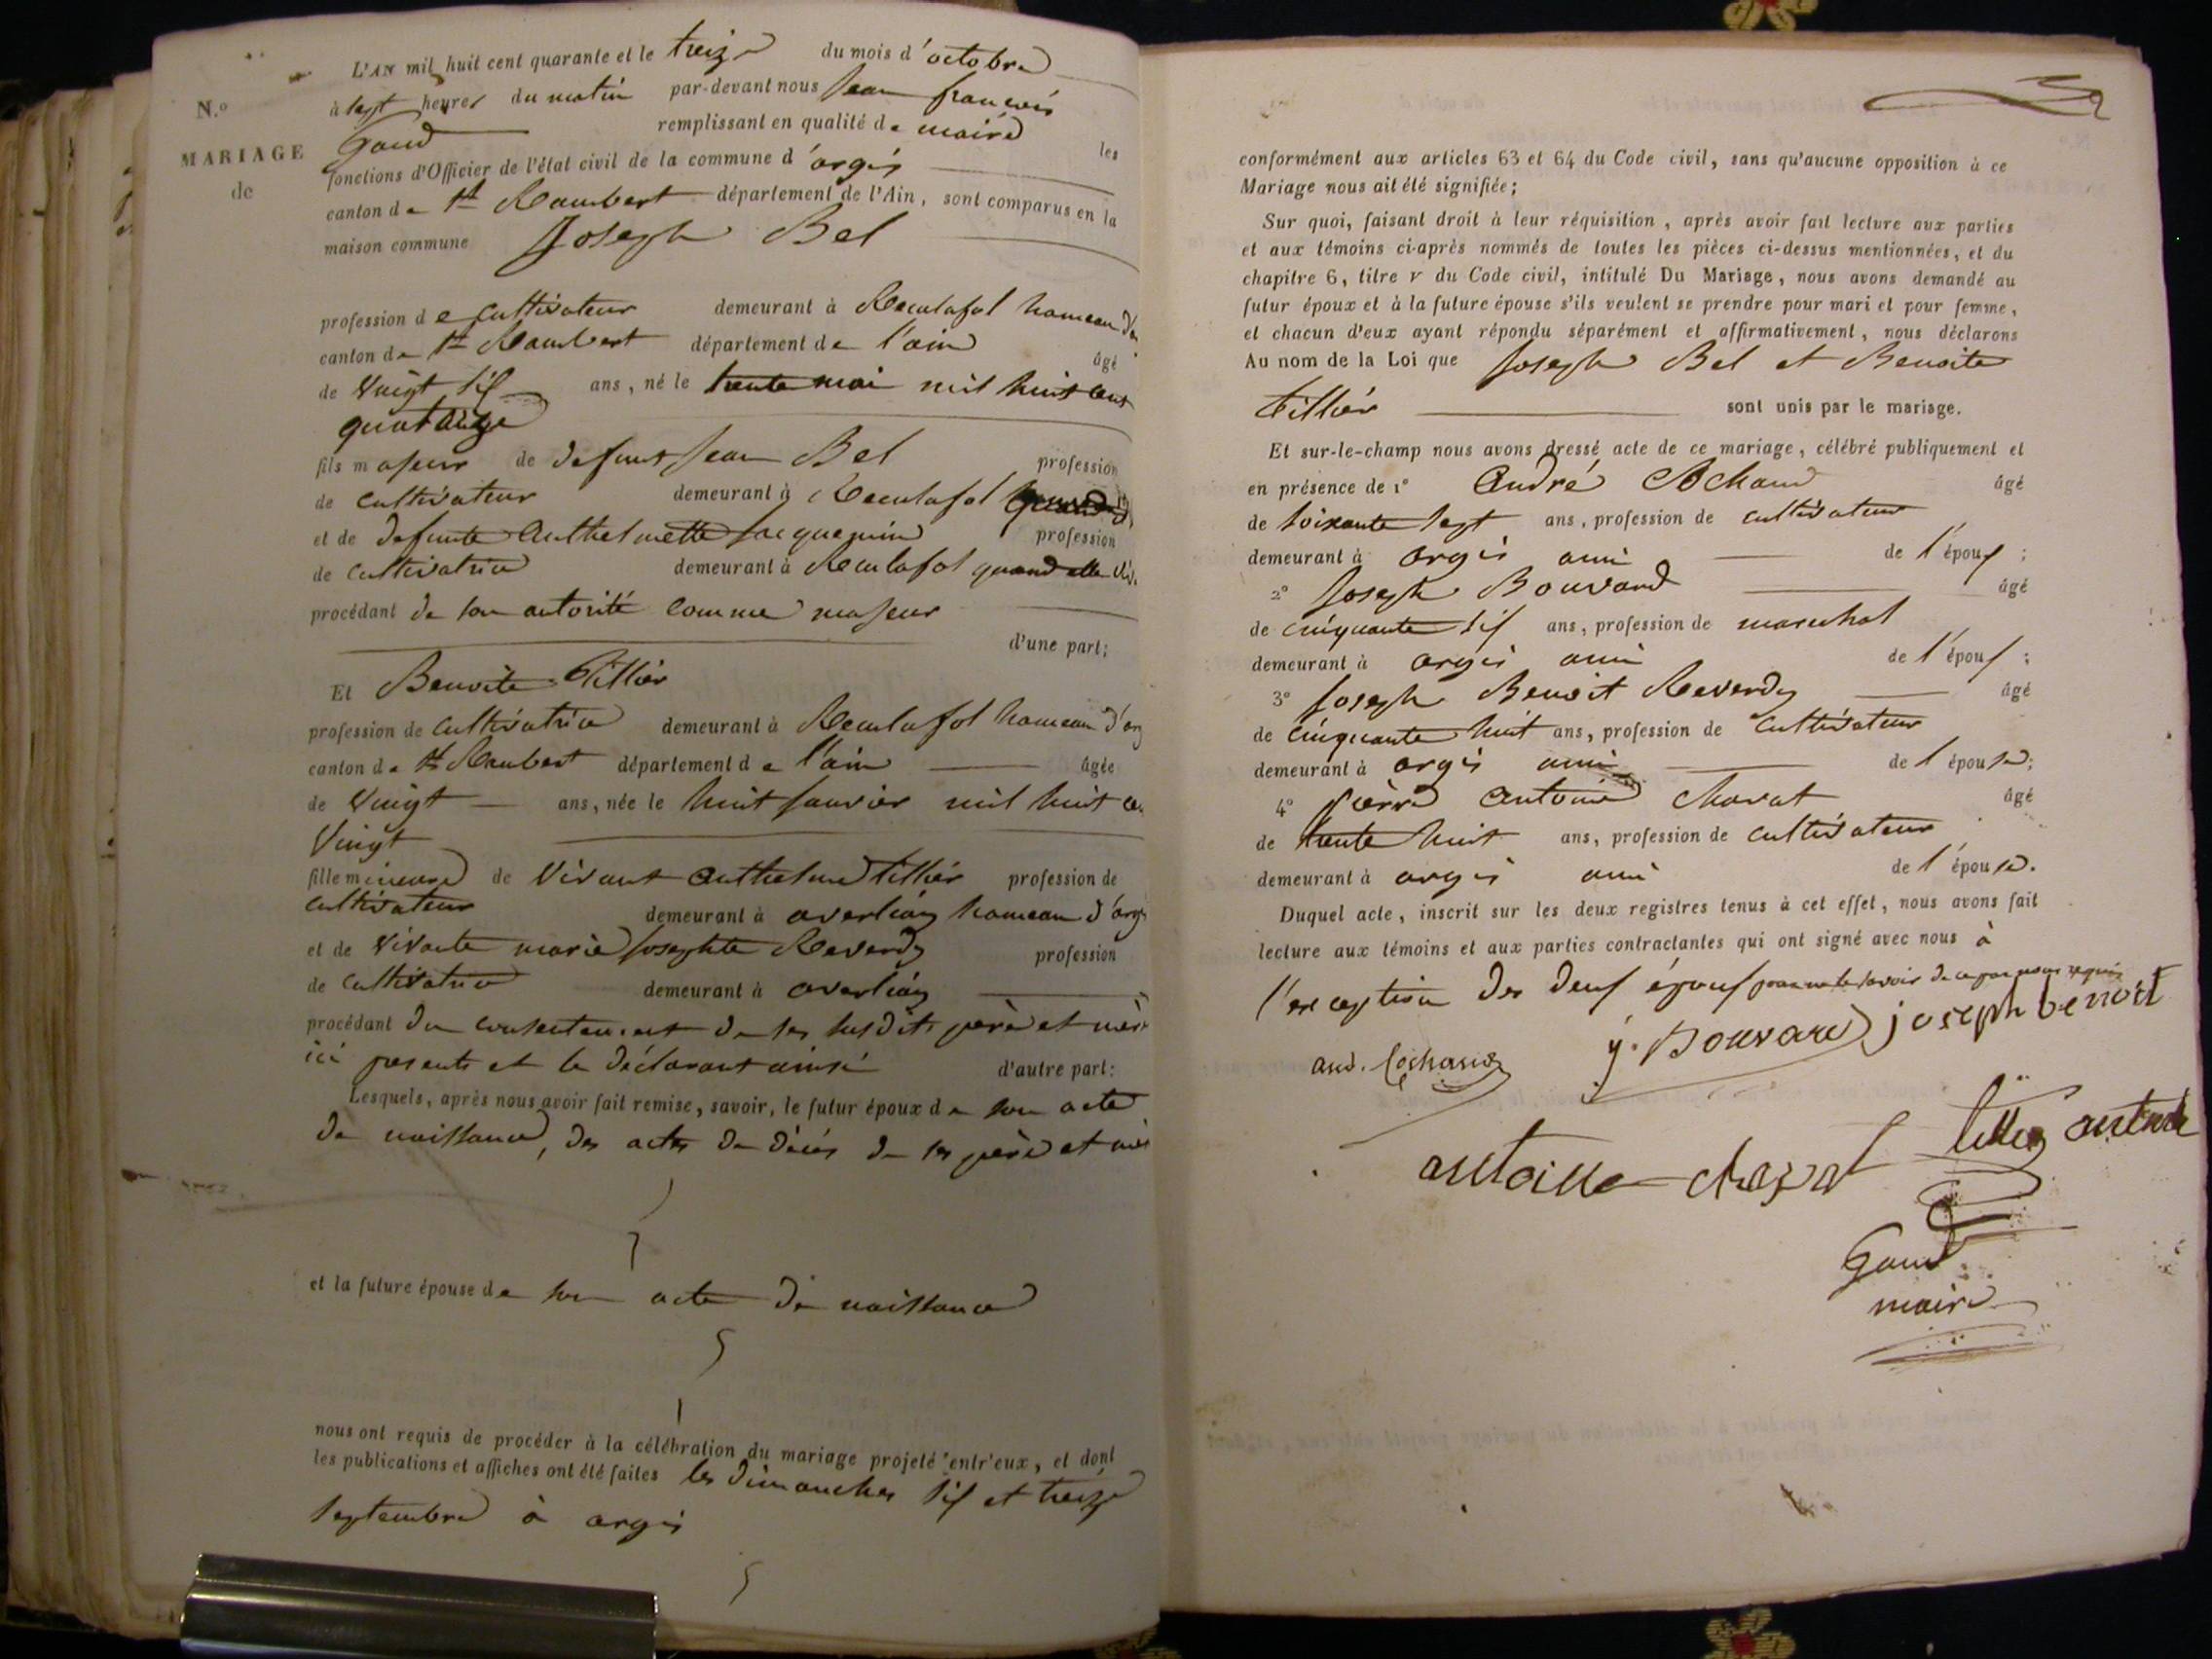 L'AN mil huit cent quarante et le treize du mois d'octobre
N.º
à sept heures du matin par-devant nous Jean françois
Goud remplissant en qualité de maire les
MARIAGE
fonctions d'Officier de l'état civil de la commune d'argis
de
canton de St Rambert département de l'Ain, sont comparus en la
maison commune Joseph Bel
profession de cultivateur demeurant à Reculafol hameau d'ar
canton de St Rambert département de l'ain âgé
de vingt six ans, né le trente mai mil huit cent
quatorze
fils majeur de defunt Jean Bel profession
de cultivateur demeurant à Reculafol
et de defunte Anthelmette Jacquemin profession
de cultivatrice demeurant à Reculafol quand elle viv
procédant de son autorité comme majeur
d'une part;
Et Benoite Tillier
profession de cultivatrice demeurant à Reculafol hameau d'arg
canton de St Rambert département de l'ain âgée
de vingt ans, née le huit janvier mil huit ce
vingt
fille mineure de vivant anthelme tillier profession de
cultivateur demeurant à averliaz hameau d'argi
et de vivante marie josephte Reverdy profession
de cultivatrice demeurant à averliaz
procédant du consentement de ses susdits père et mère
ici presents et le déclarant ainsi d'autre part:
Lesquels, après nous avoir fait remise, savoir, le futur époux de son acte
de naissance, des actes de décés de ses père et mèr
et la future épouse de son acte de naissance
nous ont requis de procéder à la célébration du mariage projeté entr'eux, et dont
les publications et affiches ont été faites les dimanches six et treize
septembre à argis
conformément aux articles 63 et 64 du Code civil, sans qu'aucune opposition à ce
Mariage nous ait été signifiée;
Sur quoi, faisant droit à leur réquisition, après avoir fait lecture aux parties
et aux témoins ci-après nommés de toutes les pièces ci-dessus mentionnées, et du
chapitre 6, titre V du Code civil, intitulé Du Mariage, nous avons demandé au
futur époux et à la future épouse s'ils veulent se prendre pour mari et pour femme,
et chacun d'eux ayant répondu séparément et affirmativement, nous déclarons
Au nom de la Loi que Joseph Bel et Benoite
tillier sont unis par le mariage.
Et sur-le-champ nous avons dressé acte de ce mariage, célébré publiquement et
en présence de 1º André Cochand âgé
de soixante sept ans, profession de cultivateur
demeurant à argis ami de l'époux;
2º Joseph Bouvard âgé
de cinquante six ans, profession de marechal
demeurant à argis ami de l'époux;
3º Joseph Benoit Reverdy âgé
de cinquante huit ans, profession de cultivateur
demeurant à argis ami de l'épouse;
4º pierre Antoine Chavat âgé
de trente huit ans, profession de cultivateur
demeurant à argis ami de l'épouse.
Duquel acte, inscrit sur les deux registres tenus à cet effet, nous avons fait
lecture aux témoins et aux parties contractantes qui ont signé avec nous à
l'exception des deux époux pour ne le savoir de ce par nous requis
and. Cochand j. Bouvard joseph benoit
antoine chavat tillier
Goud
maire